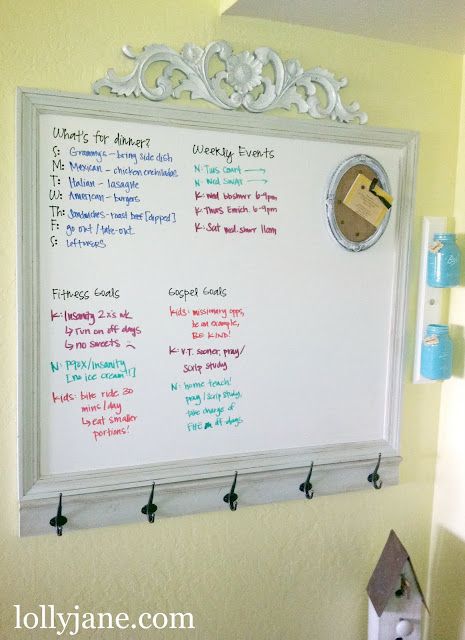 What's for dinner?
S: Grammy's - bring side dish
M: Mexican - chicken enchiladas
T: Italian - lasagne
W: American - burgers
Th: Sandwiches - roast beef [dipped]
F: go out/take-out
S: leftovers
Weekly Events
N: Tues court →
N: Wed SWAT →
K: Wed bbshwr 6-9pm
K: Thurs Enrich. 6-9pm
K: Sat wed. shwr 11am
Fitness Goals
K: Insanity 2x's wk
↳ run on off days
↳ no sweets
N: P90x/insanity
[no ice cream!!]
kids: bike ride 30
mins/day
↳ eat smaller
portions!
Gospel Goals
kids: missionary opps,
be an example,
BE KIND!
K: V.T. sooner, pray/
scrip study
N: home teach!
pray/scrip study,
take charge of
FHE off-days
lollyjane.com